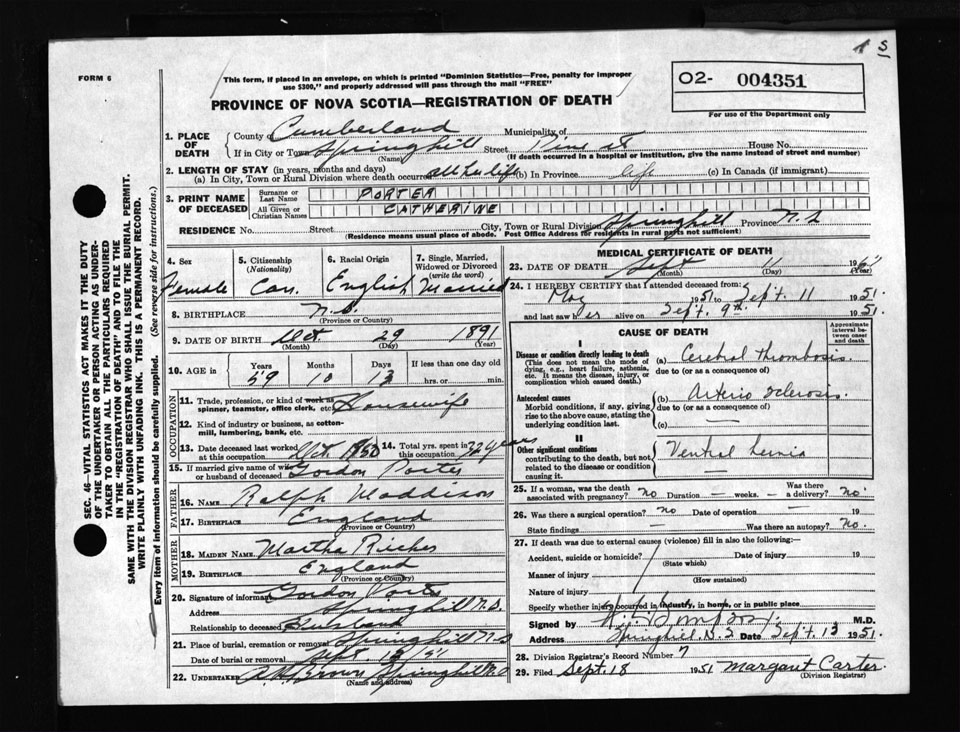 S
FORM 6
This form, if placed in an envelope, on which is printed "Dominion Statistics—Free, penalty for improper
use $300," and properly addressed will pass through the mail "FREE"
O2- 004351
For use of the Department only
PROVINCE OF NOVA SCOTIA—REGISTRATION OF DEATH
1. PLACE OF DEATH County of Cumberland Municipality of
If in City or Town Springhill Street Pine St House No.
(Name) (If death occurred in a hospital or institution, give the name instead of street and number)
2. LENGTH OF STAY (in years, months and days)
(a) In City, Town or Rural Division where death occurred all her life (b) In Province life (c) In Canada (if immigrant)
3. PRINT NAME OF DECEASED Surname or Last Name PORTER
All Given or Christian Names CATHERINE
RESIDENCE No. Street City, Town or Rural Division Springhill Province N.S
(Residence means usual place of abode. Post Office Address for residents in rural parts not sufficient)
4. Sex Female
5. Citizenship (Nationality) Can.
6. Racial Origin English
7. Single, Married, Widowed or Divorced (write the word) Married
8. BIRTHPLACE N.S.
(Province or Country)
9. DATE OF BIRTH Oct. 29 1891
(Month) (Day) (Year)
10. AGE in Years Months Days If less than one day old
59 10 13 hrs. or min.
OCCUPATION
11. Trade, profession, or kind of work as spinner, teamster, office clerk, etc. Housewife
12. Kind of industry or business, as cotton-mill, lumbering, bank, etc.
13. Date deceased last worked at this occupation Oct. 1950 14. Total yrs. spent in this occupation years
15. If married give name of wife or husband of deceased Gordon Porter
FATHER
16. NAME Ralph Maddison
17. BIRTHPLACE England
(Province or Country)
MOTHER
18. MAIDEN NAME Martha
19. BIRTHPLACE England
(Province or Country)
20. Signature of informant Gordon Porter
Address Springhill N.S.
Relationship to deceased Husband
21. Place of burial, cremation or removal Springhill N.S
Date of burial or removal Sept. 13 51
22. UNDERTAKER Brown Springhill N.S
(Name and address)
MEDICAL CERTIFICATE OF DEATH
23. DATE OF DEATH Sept 11 19
(Month) (Day) (Year)
24. I HEREBY CERTIFY that I attended deceased from:
May 1951 to Sept. 11 1951
and last saw her alive on Sept. 9th 1951.
CAUSE OF DEATH
Approximate interval between onset and death
I
Disease or condition directly leading to death
(This does not mean the mode of dying, e.g., heart failure, asthenia, etc. It means the disease, injury, or complication which caused death.)
(a) Cerebral thrombosis.
due to (or as a consequence of)
Antecedent causes
Morbid conditions, if any, giving rise to the above cause, stating the underlying condition last.
(b) Arterio sclerosis.
due to (or as a consequence of)
(c)
II
Other significant conditions
contributing to the death, but not related to the disease or condition causing it.
Ventral hernia
25. If a woman, was the death associated with pregnancy? no Duration — weeks. — Was there a delivery? no
26. Was there a surgical operation? no Date of operation — 19
State findings — Was there an autopsy? No.
27. If death was due to external causes (violence) fill in also the following:—
Accident, suicide or homicide? Date of injury 19
(State which)
Manner of injury
(How sustained)
Nature of injury
Specify whether injury occurred in industry, in home, or in public place
Signed by M.D.
Address Springhill N.S. Date Sept. 13 1951.
28. Division Registrar's Record Number 7
29. Filed Sept. 18 1951 Margaret Carter.
(Division Registrar)
SEC. 46—VITAL STATISTICS ACT MAKES IT THE DUTY
OF THE UNDERTAKER OR PERSON ACTING AS UNDER-
TAKER TO OBTAIN ALL THE PARTICULARS REQUIRED
IN THE "REGISTRATION OF DEATH" AND TO FILE THE
SAME WITH THE DIVISION REGISTRAR WHO SHALL ISSUE THE BURIAL PERMIT.
WRITE PLAINLY WITH UNFADING INK. THIS IS A PERMANENT RECORD.
Every item of information should be carefully supplied. (See reverse side for instructions.)